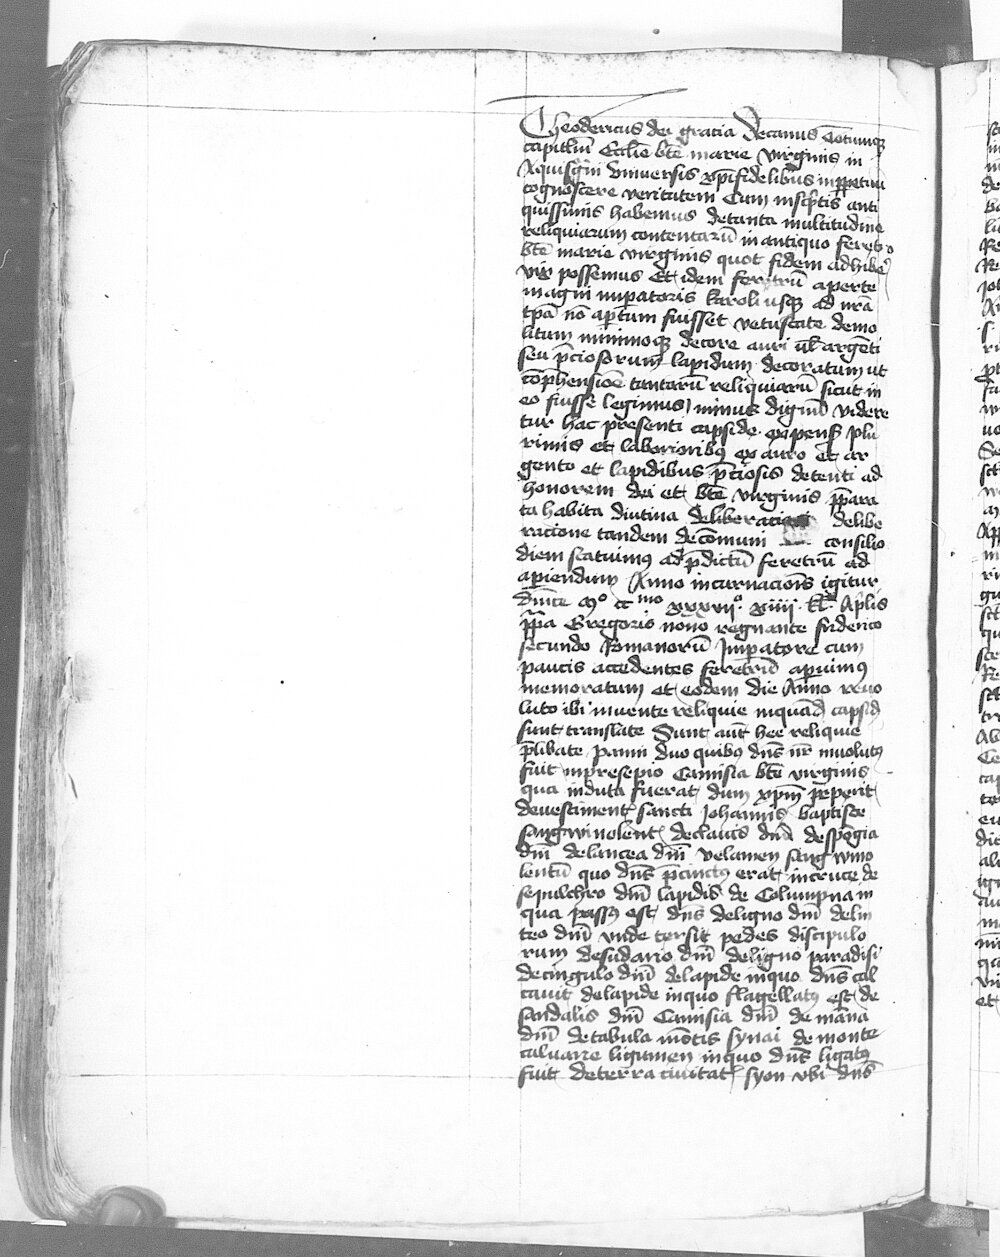 Theodericus dei gratia Decanus Totumq̢
capitl̄m Eccl̄ie bt̄e marie virginis in
Aquisg̃ni vniuersis xp̄ifidelibus inp̱petuū
cognoscere veritatem Cum inscp̃tis anti
quissimis habemus detanta multitudine
reliquiarum contentarū in antiquo feretro
bt̄e marie virginis quot fidem adhibe᷑
vix possemus Et idem feretrū aperte
magni imp̱atoris karoli usq̢ ad nr̄a
tp̄a nō ap̱tum fuisset vetustate demo
litum minimoq̢ decore auri ul̄ argēti
seu p̄ciosorum lapidum decoratum ut
cōp̱hensiōe tantarū reliquiarū sicut in
eo fuisse legimus minus dignū videre
tur hac presenti capside expens̄ plu
rimis et laborioribꝫ ex auro et ar
gento et lapidibus p̄ciosis detenti ad
honorem dei et bt̄e virginis p̱para
ta habita diutina deliberacioni delibe
racione tandem decōmuni consilio
diem statuimꝰ ad p̄dictū feretrū ad
aperiendum Anno incarnacionis igitur
dn̄ice mº ccmo xxxvii. xiiii. kl̄. Aprilis
p̱pa Gregorio nono regnante friderico
secundo Romanorū Imp̱atore cum
paucis accedentes feretrū aperuimꝰ
memoratum et eodem die Anno reuo
luto ibi inuente reliquie inquād̄ capsid̄
sunt translate Sunt aūt hee reliquie
p̄libate panni duo quibꝫ dn̄s nr̄ inuolutꝰ
fuit inpresepio Camisia bt̄e virginis
qua induta fuerat dum xp̄m peperit
deuestiment̄ sancti Johannis baptiste
sangwinolent̄ declauis dn̄i despōgia
dn̄i delancea dn̄i velamen sangwino
lentū quo dn̄s p̄cinctꝰ erat incruce de
sepulchro dn̄i lapidis de Columpna in
qua passꝰ est dn̄s deligno dn̄i delin
teo dn̄i vnde tersit pedes discipulo
rum desudario dn̄i deligno paradisi
decingulo dn̄i delapide inquo dn̄s cal
cauit delapide inquo flagellatꝰ est de
sandaliis dn̄i Camisia dn̄i de māna
dn̄i detabula mōtis synai demonte
caluarie ligamen inquo dn̄s ligatꝰ
fuit deterra ciuitat̄ syon vbi dn̄s